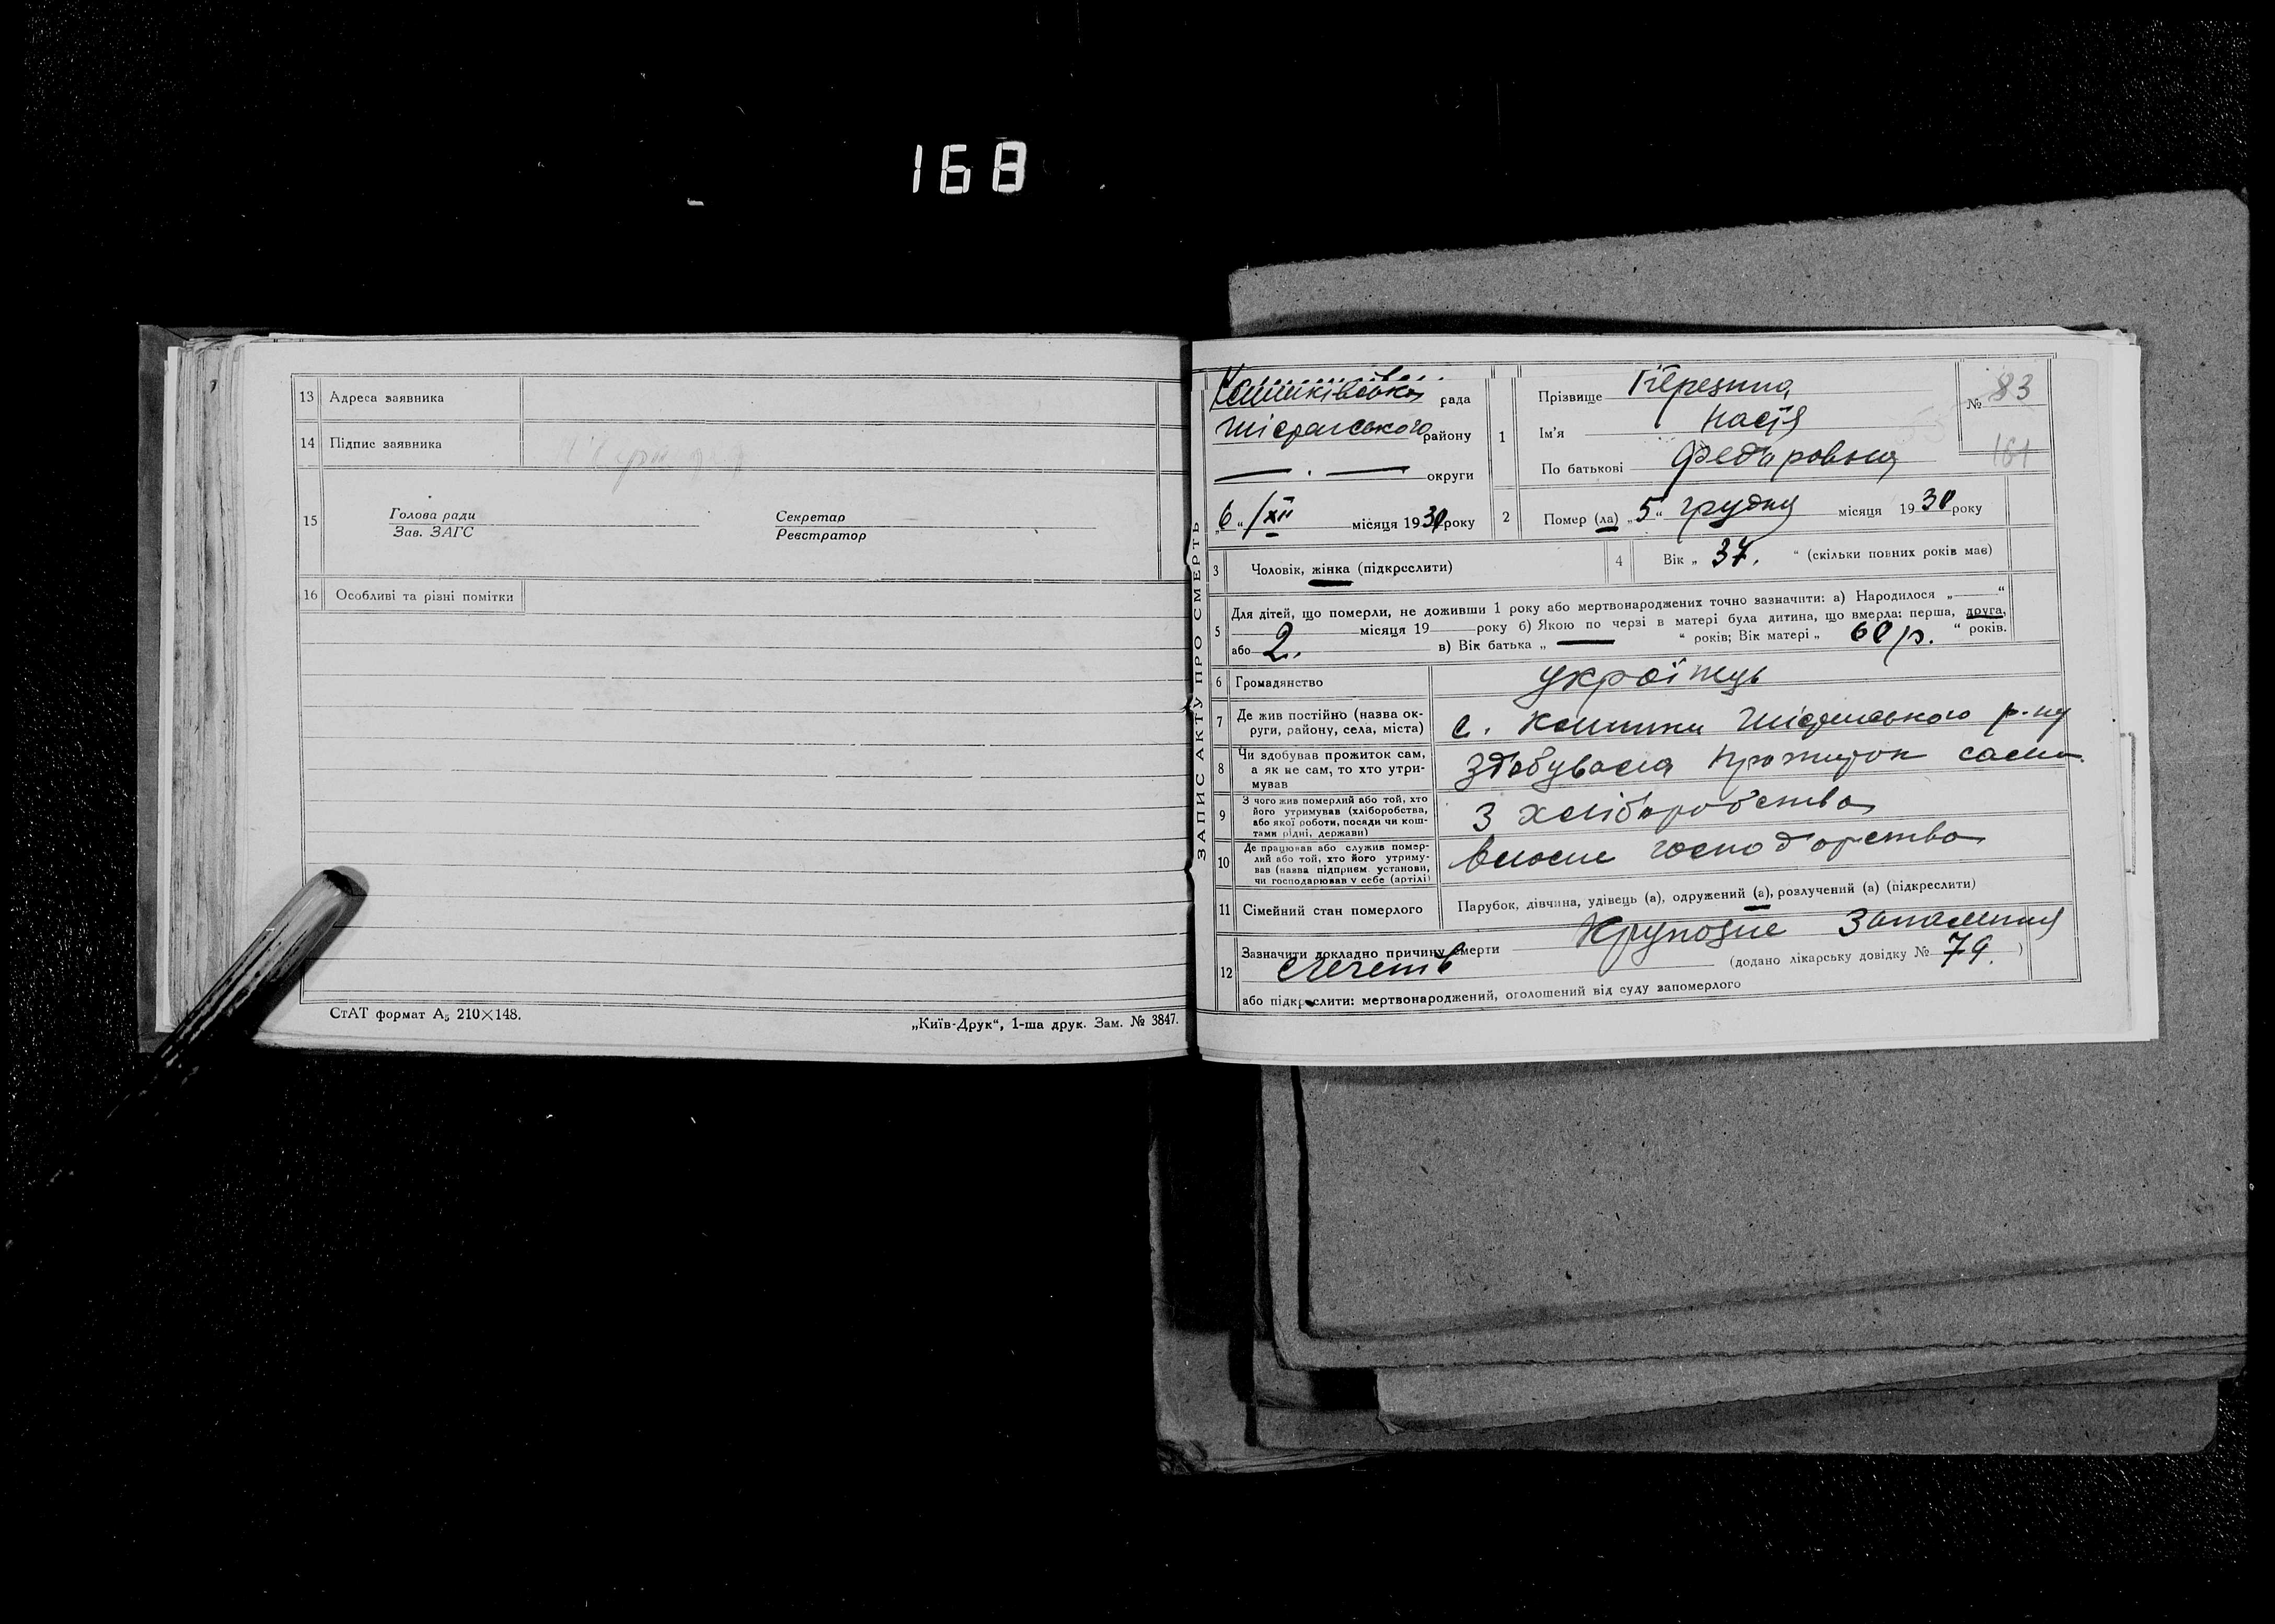 168
13 Адреса заявника
14 Підпис заявника
15 Голова ради
Зав. ЗАГС
Секретар
Реєстратор
16 Особливі та різні помітки
СтАТ формат А₅ 210×148.
„Київ-Друк“, 1-ша друк. Зам. № 3847.
ЗАПИС АКТУ ПРО СМЕРТЬ
рада
району
— . — округи
„6“ /XII місяця 1930 року
1 Прізвище
Ім'я Настя
По батькові Федоровна
№ 83
161
2 Помер (ла) „5“ грудня місяця 1930 року
3 Чоловік, жінка (підкреслити)
4 Вік „37.“ (скільки повних років має)
5 Для дітей, що померли, не доживши 1 року або мертвонароджених точно зазначити: а) Народилося „——“
місяця 19 року б) Якою по черзі в матері була дитина, що вмерла: перша, друга,
або 2. в) Вік батька „ — “ років; Вік матері „ 60 р. “ років.
6 Громадянство українець
7 Де жив постійно (назва ок-
руги, району, села, міста) с. р-ну
8 Чи здобував прожиток сам,
а як не сам, то хто утри-
мував
здобувала прожиток сама
9 З чого жив померлий або той, хто
його утримував (хліборобства,
або якої роботи, посади чи кош-
тами рідні, держави)
З хліборобства
10 Де працював або служив помер-
лий або той, хто його утриму-
вав (назва підприєм. установи,
чи господарював у себе (артілі)
власне господарство
11 Сімейний стан померлого Парубок, дівчина, удівець (а), одружений (а), розлучений (а) (підкреслити)
12 Зазначити докладно причину смерти Крупозне запалення
легенів (додано лікарську довідку № 79. )
або підкреслити: мертвонароджений, оголошений від суду запомерлого